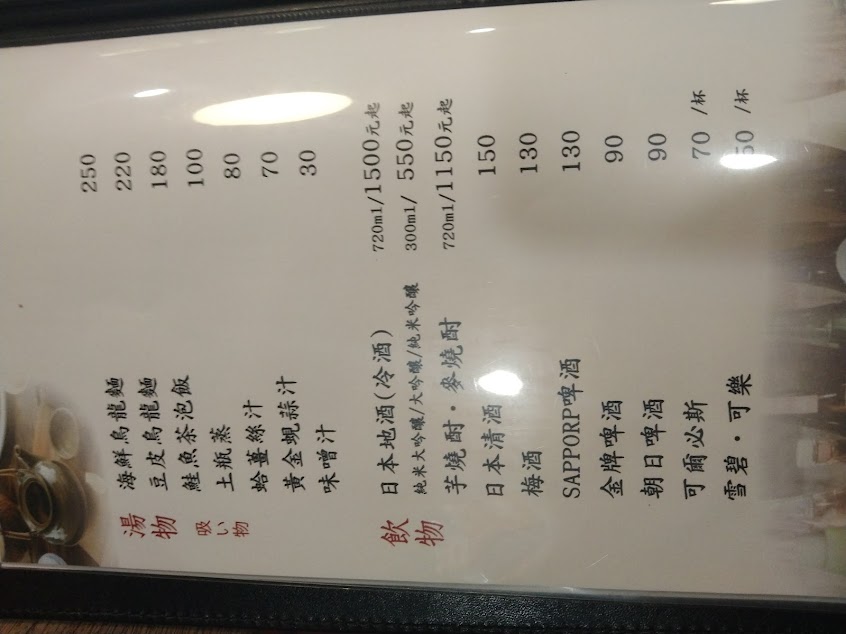 湯物
吸い物
海鮮烏龍麵 250
豆皮烏龍麵 220
鮭魚茶泡飯 180
土瓶蒸 100
蛤薑絲汁 80
黃金蜆蒜汁 70
味噌汁 30
飲物
日本地酒(冷酒) 720ml/1500元起
純米大吟釀/大吟釀/純米吟釀 300ml/ 550元起
芋燒酎·麥燒酎 720ml/1150元起
日本清酒 150
梅酒 130
SAPPORP啤酒 130
金牌啤酒 90
朝日啤酒 90
可爾必斯 70 /杯
雪碧·可樂 50 /杯